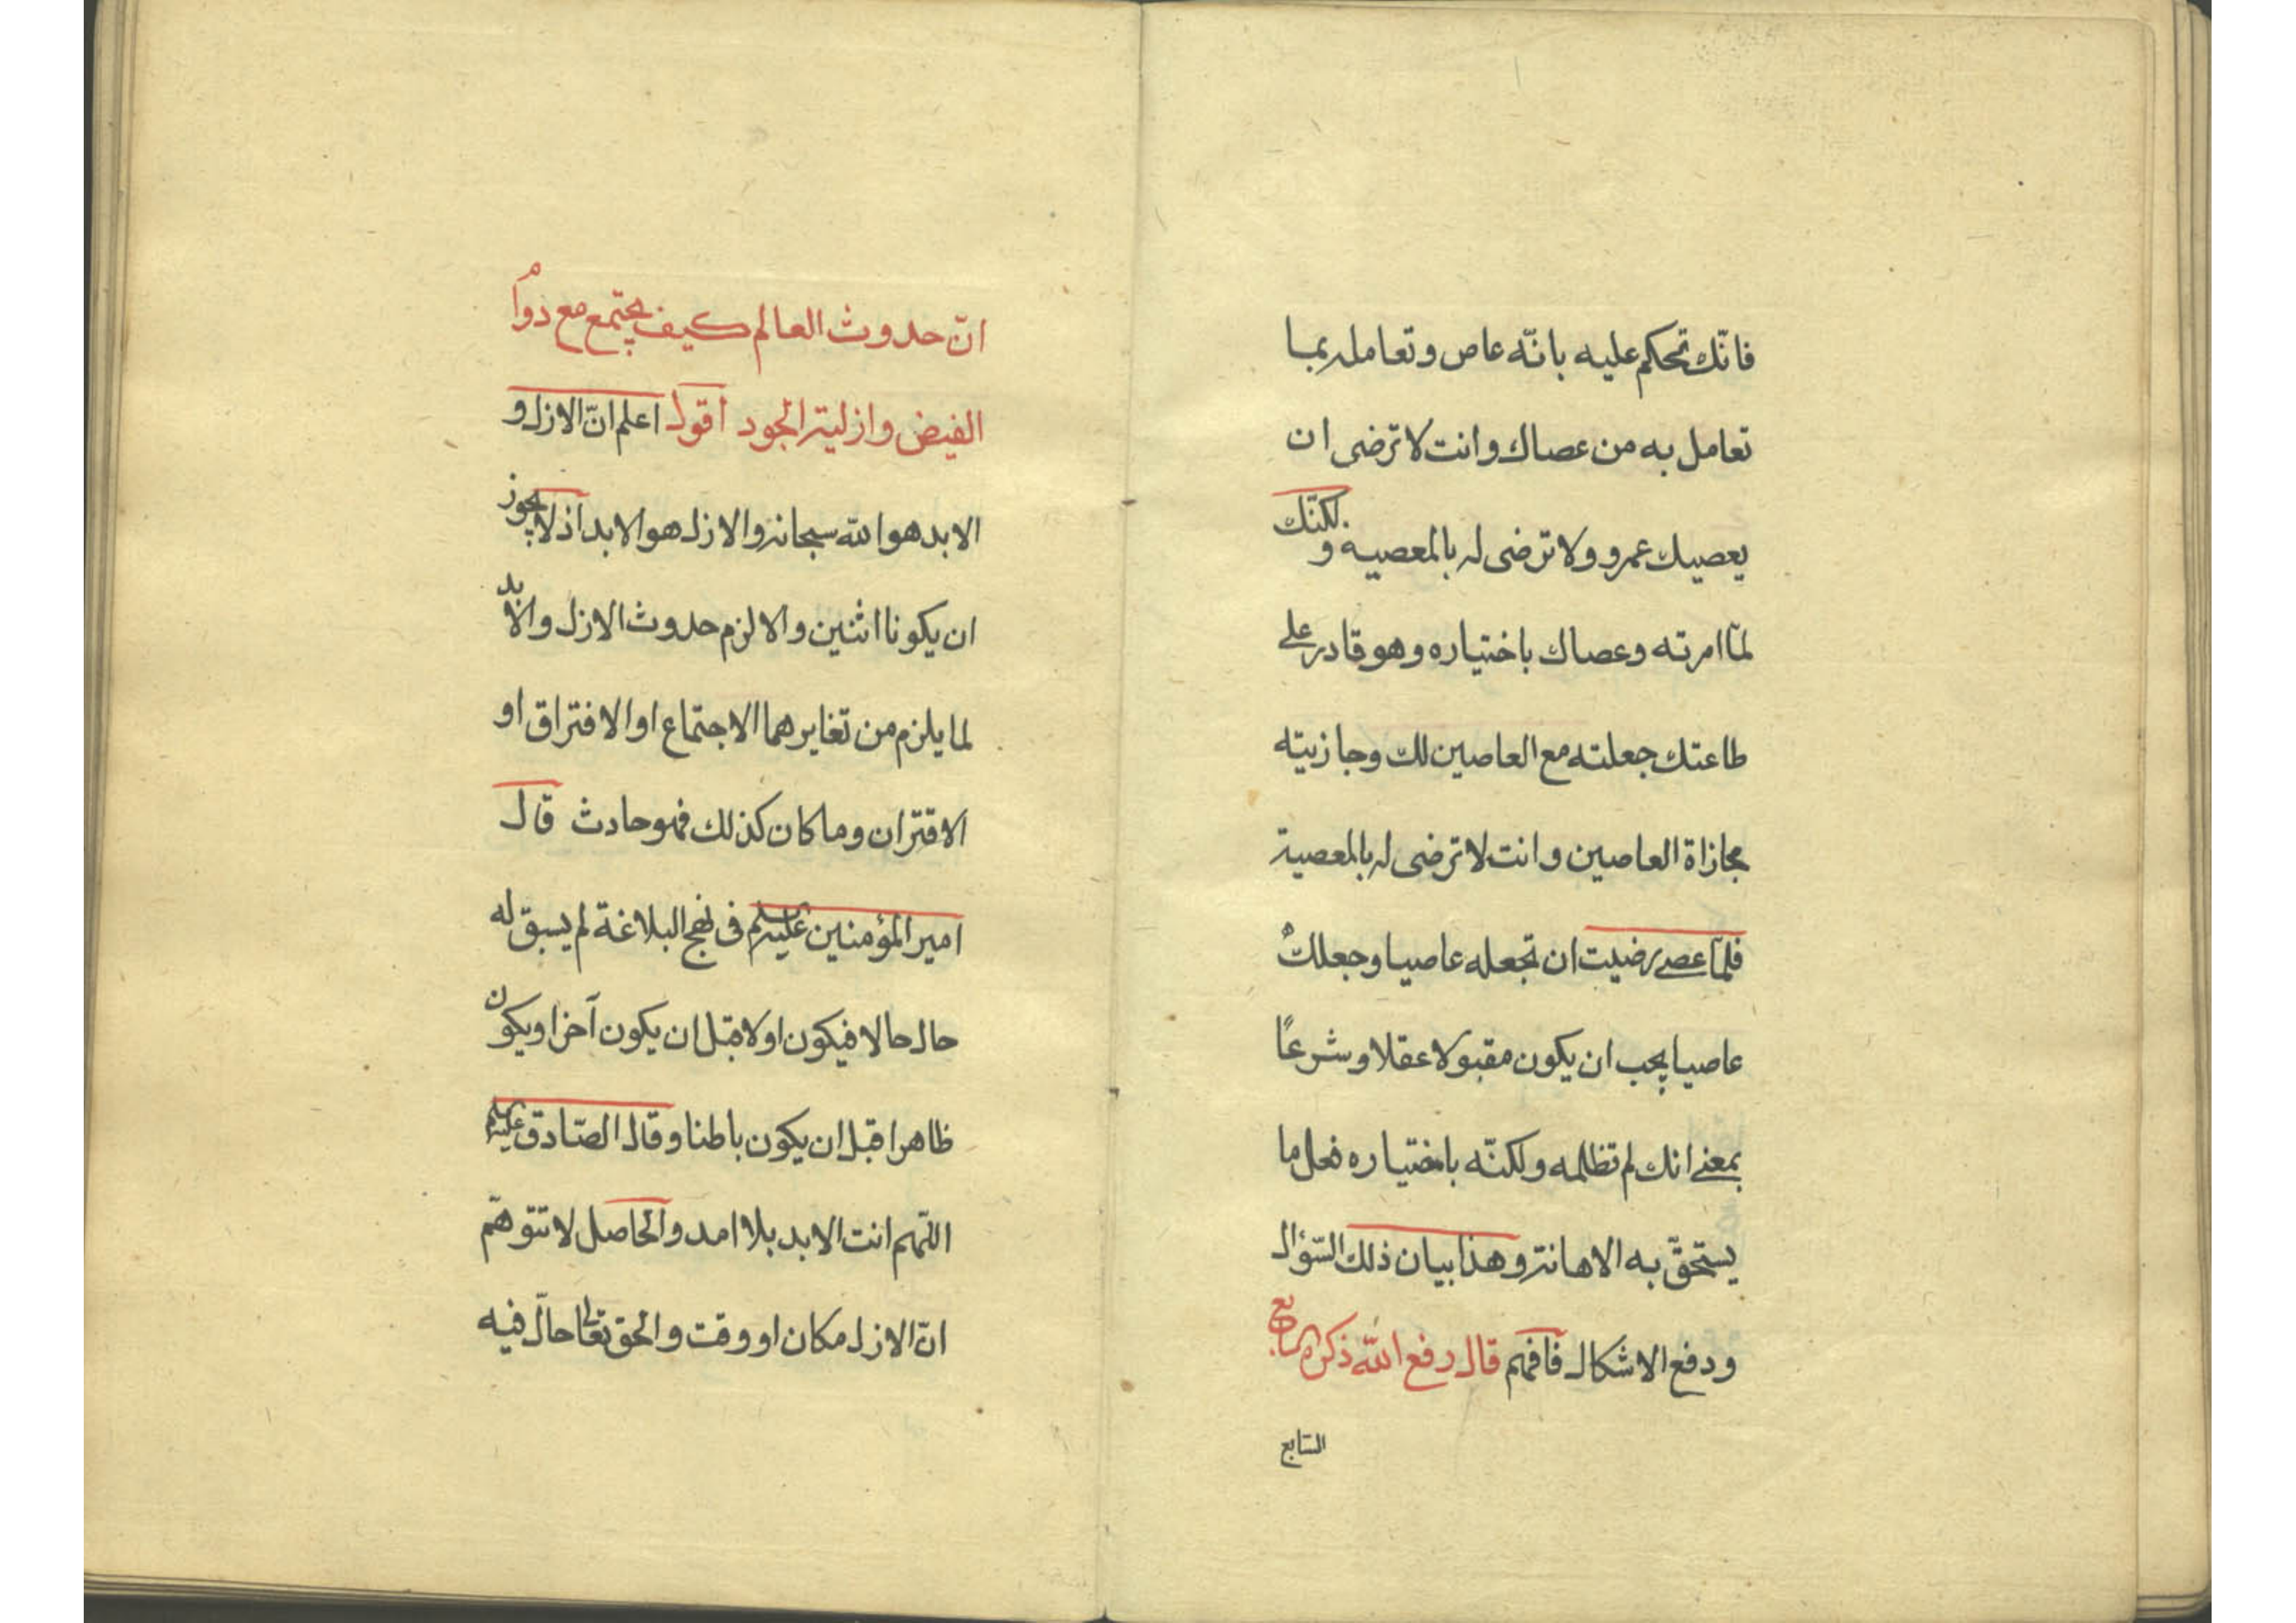 فانّك تحكم عليه بانّه عاص وتعامله بما
تعامل به من عصاك وانت لا ترضى ان
يعصيك عمرو ولا ترضى له بالمعصيه ولكنّك
لمّا امرته وعصاك باختياره وهو قادر على
طاعتك جعلته مع العاصين لك وجازيته
مجازاة العاصين وانت لا ترضى له بالمعصية
فلمّا عصى رضيت ان تجعله عاصيا وجعلك
عاصيا يجب ان يكون مقبولا عقلا وشرعًا
بمعنى انك لم تظلمه ولكنّه باختياره فعل ما
يستحقّ به الاهانة وهذا بيان ذلك السّؤال
ودفع الاشكال فافهم قال رفع اللّه ذكره السابع
السّابع
انّ حدوث العالم كيف يجتمع مع دوام
الفيض وازلية الجود اقول اعلم انّ الازل و
الابد هو اللّه سبحانه والازل هو الابد اذ لا يجوز
ان يكونا اثنين والا لزم حدوث الازل والابد
لما يلزم من تغايرهما الاجتماع او الافتراق او
الاقتران وما كان كذلك فهو حادث قال
امير المؤمنين عليه السلم فى نهج البلاغة لم يسبق له
حال حالا فيكون اولا قبل ان يكون آخرا ويكون
ظاهرا قبل ان يكون باطنا وقال الصّادق عليه السلم
اللّهم انت الابد بلا امد والحاصل لا تتوهّم
انّ الازل مكان او وقت والحق تعالى حالّ فيه